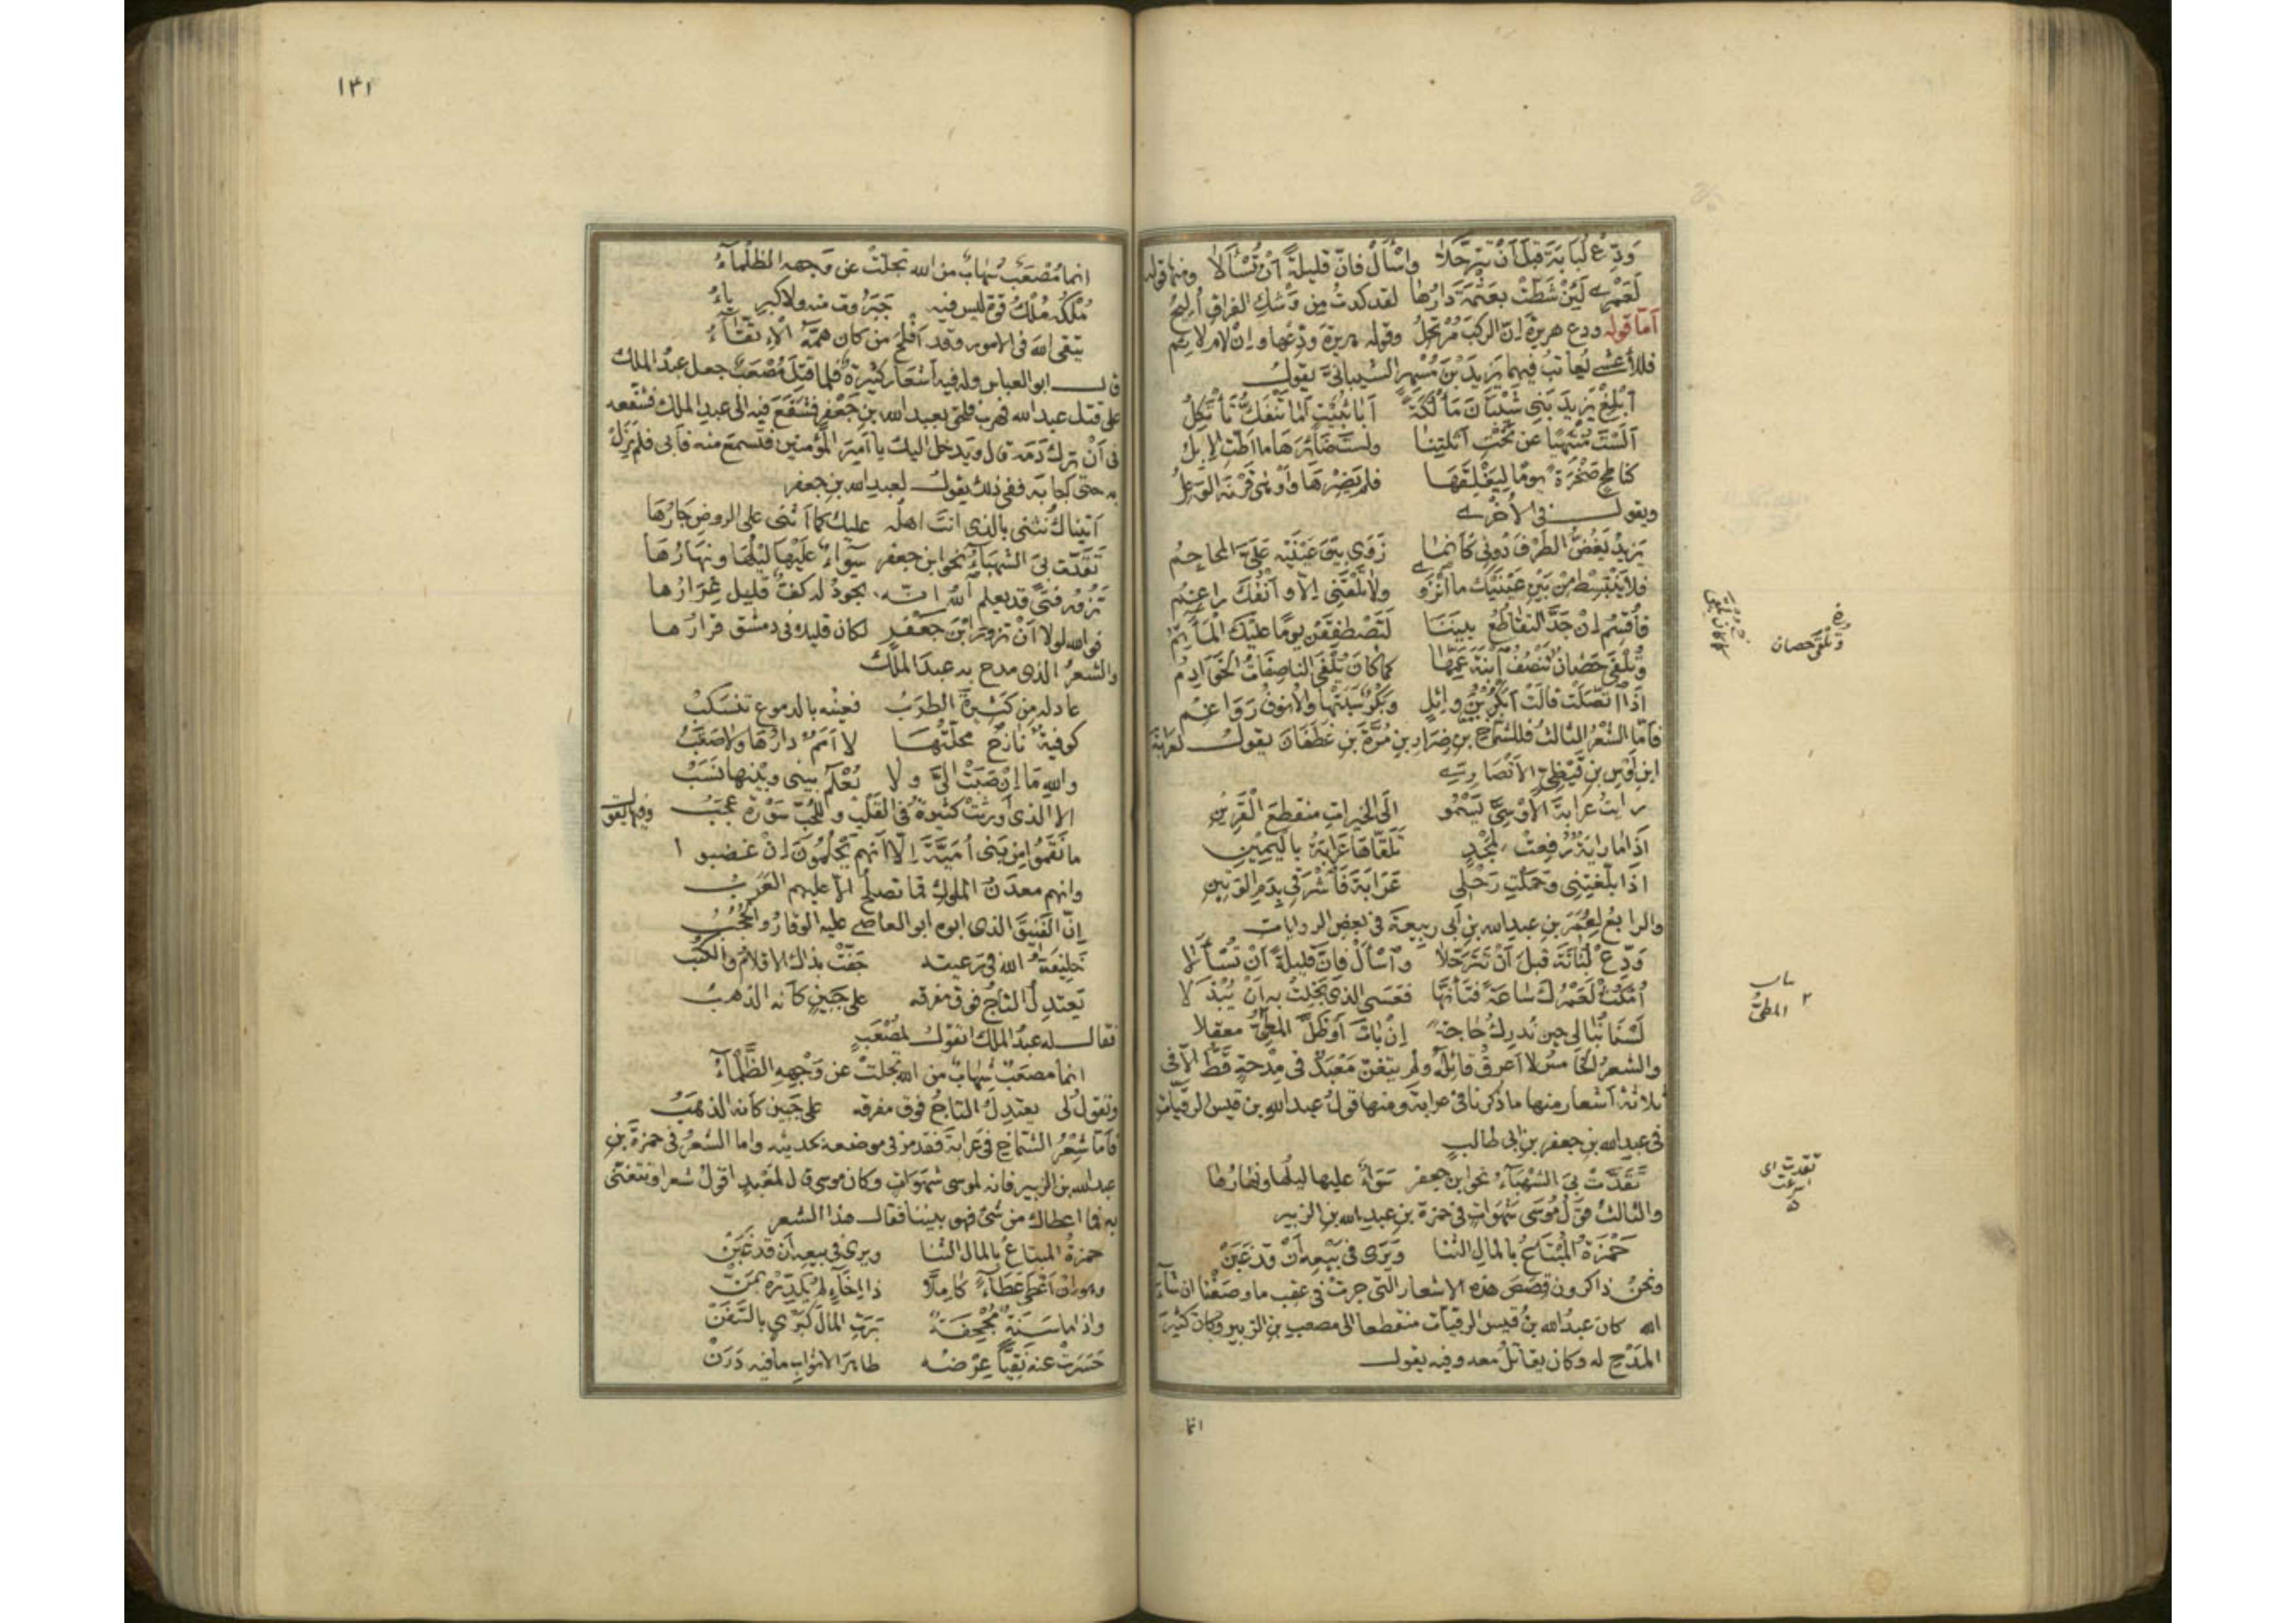 وَدِّعْ لُبَابَةَ قَبْلَ أَنْ تَتَرَحَّلَا واسْأَلْ فانّ قليلةً أنْ تُسْأَلَا ومنها قوله
لَعَمْرِي لَئِنْ شَطَّتْ بعَثْمَةَ دَارُها لقد كدتُ مِن وَشْكِ الفراقِ أُلِيحُ
أمّا قوله ودع هريرة إنّ الركبَ مُرْتَحِلُ وقوله هريرة ودّعها وإن لام لائم
فللأعشى يُعاتبُ فيهما يزيدَ بنَ مُسْهِر الشيبانيّ يقول
أبْلِغْ يزيدَ بَنِي شَيْبَانَ مَأْلُكَةً أبَا ثُبَيْتٍ أمَا تَنْفَكُّ تَأْتَكِلُ
أَلَسْتَ مُنْتَهِيًا عن نَحْتِ أثْلَتِنَا ولستَ ضَائِرَهَا ما أطّتِ الإبلُ
كناطحٍ صَخْرَةً يومًا لِيَفْلِقَهَا فلم يَضِرْهَا وأوْهَى قَرْنَهُ الوَعِلُ
ويقول في الأخرى
يزيدُ يَغُضُّ الطَّرْفَ دُونِي كَأنّما زَوَى بينَ عَيْنَيْهِ عَلَيَّ المحاجمُ
فلا يَنْبَسِطْ مِنْ بَيْنِ عَيْنَيْكَ ما انْزَوَى ولا تَلْقَنِي إلّا وأنْفُكَ راغمُ
فأُقْسِمُ إنْ جَدَّ التقاطُعُ بيننَا لَتَصْطَفِقَنْ يومًا عليْكَ المآتمُ
وتُلْفَى حَصَانٌ تَنْصُفُ ابْنَةَ عَمِّهَا كما كانَ يُلْفَى الناصفاتُ الخَوَادِمُ
إذا اتّصلَتْ قالتْ أَبَكْرَ بْنَ وائلٍ وبَكْرٌ سَبَتْهَا والأنوفُ رَوَاغِمُ
فأمّا الشعْرُ الثالثُ فللشمّاخِ بنِ ضِرَارِ بنِ مُرَّةَ بنِ غَطَفَانَ يقول لعرابةَ
ابنِ أوْسِ بنِ قَيْظِيٍّ الأنْصَاريِّ
رايتُ عرابةَ الأوْسِيَّ يَسْمُو الى الخيراتِ منقطعَ الْقَرِينِ
إذا ما رايةٌ رُفِعتْ لمَجْدٍ تَلَقّاهَا عَرَابَةُ باليَمِينِ
إذا بلّغْتِنِي وحَمَلْتِ رَحْلِي عَرَابَةَ فَاشْرَقِي بِدَمِ الوَتِينِ
والرابعُ لعُمَرَ بنِ عبد الله بنِ أبي ربيعةَ في بعض الروايات
وَدِّعْ لُبَابَةَ قبلَ أنْ تَتَرَحَّلَا واسْأَلْ فانّ قليلةً أنْ تُسْأَلَا
أُمْكُثْ لَعَمْرُكَ سَاعَةً فَتَأَنَّهَا فَعَسَى الذي بَخِلَتْ به أنْ يُبْذَلَا
لَسْنَا نُبَالِي حينَ نُدرِكُ حاجةً إنْ بَاتَ أوْ ظَلَّ المَطِيُّ معقلا
والشعرُ الخامسُ لا أعرفُ قائلَهُ ولم يتغنّ مَعْبَدٌ في مِدْحَةٍ قَطُّ الّا في
ثلاثةِ أشعار منها ما ذكرنا في عرابة ومنها قولُ عبد اللهِ بن قيس الرقيّات
في عبدِ الله بنِ جعفر بن أبي طالب
تَقَدَّتْ بِيَ الشَّهْبَاءُ نحو ابن جعفر سَوَاءٌ عليها ليلُها ونهارُها
والثالث قولُ مُوسَى شَهَوَاتٍ في حمزةَ بنِ عبدِ الله بنِ الزبير
حَمْزَةُ المُبْتَاعُ بالمالِ الثنا وَيَرَى في بَيْعِهِ أنْ قَدْ غَبَنْ
ونحنُ ذاكرون قِصَصَ هذه الاشعار التي جرتْ في عقب ما وصفْنا ان شاءَ
الله كان عبدُ الله بنُ قيس الرقيّات منقطعا الى مصعب بنِ الزبير وكان كثيرَ
المَدْحِ له وكان يقاتلُ معه وفيه يقول
انما
وتُلْفَى حصان
المطيُّ
تقدت اى
اسرعت
١٣١
انما مُصْعَبٌ شهابٌ من الله تجلّتْ عن وجهه الظلماءُ
مُلْكُهُ مُلْكُ قوة ليس فيه جَبَرُوت منه ولا كبرياءُ
يتقى اللهَ في الامور وقد أفلحَ من كان همَّهُ الاتقاءُ
قال ابو العباس وله فيه أشعار كثيرة فلما قتلَ مُصْعَبٌ جعل عبدُ الملك
على قتل عبد الله فهرب فلحق بعبد الله بن جَعْفر فشفع فيه الى عبد الملك فشفعه
في أن ترك دَمَه قال ويدخل اليك يا أميرَ المؤمنين فتسمع منه فأبى فلم يزل
به حتى أجابه ففي ذلك يقول لعبد الله بن جعفر
أتيناكَ نُثْنِي بالذي انتَ أهله عليكَ كما أثنى على الروضِ جارُهَا
تَقَدّت بِيَ الشهباءُ نحو ابن جعفر سواءٌ عَلَيْهَا لَيْلُهَا ونهارُهَا
تزورُ فتًى قد يعلم اللهُ أنّه تجودُ له كفّ قليل غِرَارُها
فوالله لولا أنْ تزورَ ابْنَ جعفرٍ لكان قليلًا في دمشق قرارُها
والشعرُ الذي مدح به عبدَ الملك
عاد له من كَثِيرَةَ الطرَبُ فعينه بالدموع تنسكبُ
كوفيةٌ نازحٌ محلّتُهَا لا أَمَمٌ دارُهَا ولا صَقَبُ
واللهِ ما إنْ صَبَتْ اليّ ولا يُعْلَمُ بيني وبينها نَسَبْ
الا الذي أورثتْ كثيرةُ في القلب وللحُبّ سَوْرَة عَجَبُ وفيها يقول
ما نَقَمُوا مِن بَني أُمَيَّةَ إلّا أنّهم يَحْلُمُونَ إنْ غضبوا
وانهم معدنُ الملوك فما تصلُحُ الّا عليهم العَرَبُ
إنّ الفَنِيقَ الذي ابوه ابو العاصي عليه الوقارُ والحُجُبُ
خليفةُ الله في رعيته جَفّتْ بذاك الاقلامُ والكتبُ
يعتدِلُ التاجُ فوق مفرقه على جَبينٍ كأنه الذهبُ
فقال له عبدُ الملك اتقول لمُصْعَبٍ
انما مصعبٌ شهابٌ من الله تجلتْ عن وَجْهِهِ الظَّلْمَاءُ
وتقولُ لي يعتدِلُ التاجُ فوق مفرقه على جَبينٍ كأنه الذهَبُ
فأمّا شِعْرُ الشمّاخِ في عَرَابةَ فقد مرّ في موضعه بحديثه واما الشعْرُ في حمزةَ بنِ
عبد الله بن الزبير فانه لموسى شَهَوَاتٍ وكان موسى قال لمَعْبَدٍ اقولُ شعرا وتتغنّى
به فما اعطاك من شيء فهو بيننا فقال هذا الشعر
حمزةُ المبتاعُ بالمال الثنا ويرى في بيعه أن قد غَبَنْ
وهو إن أعْطَى عَطَاءً كاملًا ذا إخَاءٍ لم يُكَدِّرْهُ بمَنْ
واذا ما سَنَةٌ مُجْحِفَةٌ بَرَتِ المالَ كبَرْيٍ بالسَّفَنْ
حَسَرَتْ عنه نَقِيًّا عِرْضُه طاهرَ الاثواب ما فيه دَرَنْ